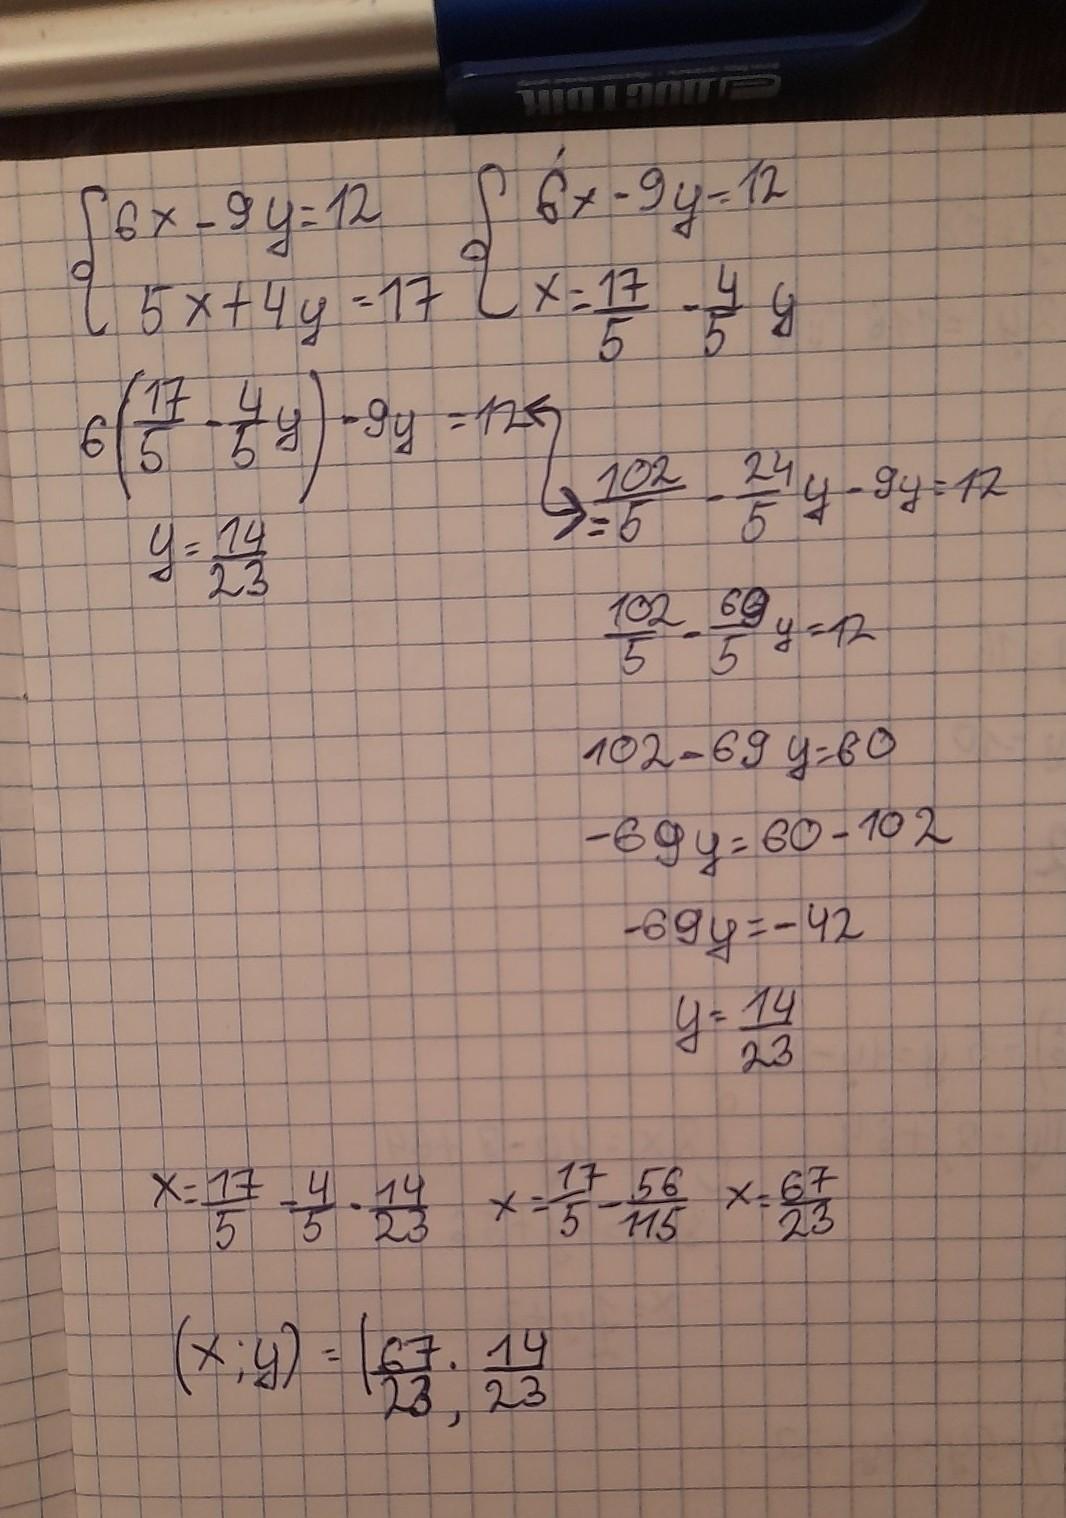 6x - 9y = 12
5x + 4y = 17
6x - 9y = 12
x = 17/5 - 4/5 y
6(17/5 - 4/5 y) - 9y = 12
= 102/5 - 24/5 y - 9y = 12
y = 14/23
102/5 - 69/5 y = 12
102 - 69y = 60
-69y = 60 - 102
-69y = -42
y = 14/23
x = 17/5 - 4/5 · 14/23 x = 17/5 - 56/115 x = 67/23
(x ; y) = (67/23 ; 14/23